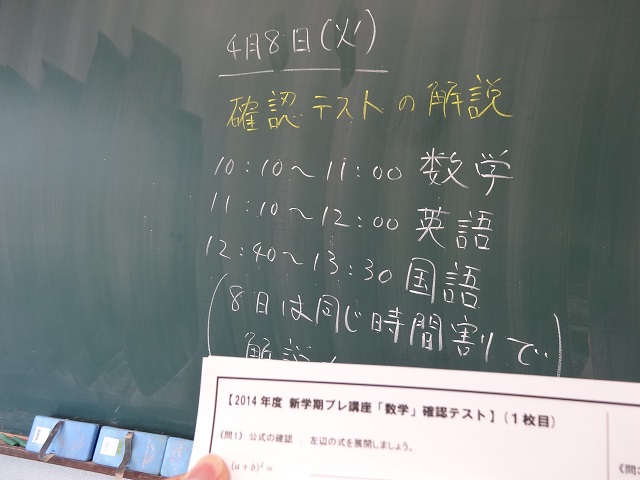 4月8日(火)
確認テストの解説
10:10~11:00 数学
11:10~12:00 英語
12:40~13:30 国語
(8日は同じ時間割で
解説
【2014年度 新学期プレ講座「数学」確認テスト】(1枚目)
《問1》 公式の確認 : 左辺の式を展開しましょう。
(a+b)²=
《問